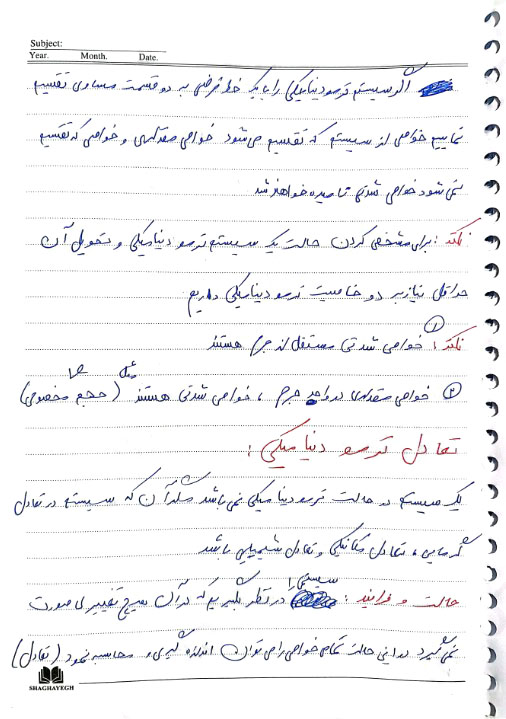 Subject:
Year. Month. Date.
اگر سیستم ترمودینامیکی را با یک خط فرضی به دو قسمت مساوی تقسیم
نماییم خواصی از سیستم که تقسیم می شود خواص مقداری و خواصی که تقسیم
نمی شود خواص شدتی نامیده خواهند شد
نکته: برای مشخص کردن حالت یک سیستم ترمودینامیکی و تحویل آن
حداقل نیاز به دو خاصیت ترمودینامیکی داریم
نکته: ① خواص شدتی مستقل از جرم هستند
② خواص مقداری در واحد جرم، خواص شدتی هستند مثل (حجم مخصوص)
تعادل ترمودینامیکی:
یک سیستم در حالت ترمودینامیکی نمی باشد مگر آن که سیستم در تعادل
گرمایی، تعادل مکانیکی و تعادل شیمیایی باشد
حالت و فرایند: سیستمی را در نظر بگیریم که در آن هیچ تغییری صورت
نمی گیرد در این حالت تمامی خواص را می توان اندازه گیری و محاسبه نمود (تعادل)
SHAGHAYEGH